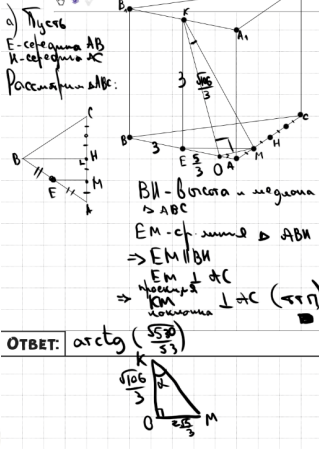 а) Пусть
E-середина AB
H-середина AC
Рассмотрим △ABC:
C
B
H
L
M
E
A
B₁
K
A₁
3
√106/3
B
3
E
5/3
O
A
M
H
C
BH - высота и медиана
△ ABC
EM - ср. линия △ ABH
⇒ EM ∥ BH
EM ⊥ AC
проекция
⇒ KM ⊥ AC (ТТП)
наклонная
ОТВЕТ: arctg (√530/53)
K
√106/3
α
O
2√5/3
M